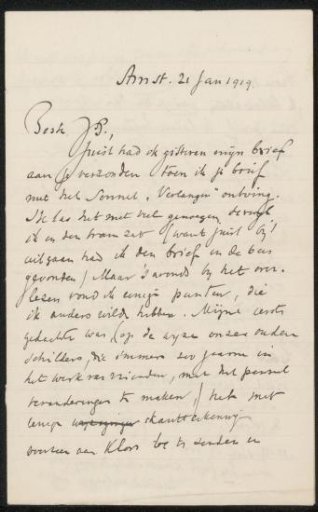 Amst. 21 Jan 1919.
Beste B.,
Juist had ik gisteren mijn brief
aan je verzonden toen ik je brief
met het Sonnet "Verlangen" ontving.
Ik las het met veel genoegen, terwijl
ik in den tram zat (want juist bij 't
uitgaan had ik den brief in de bus
gevonden) Maar 's avonds bij het over-
lezen vond ik eenige punten, die
ik anders wilde hebben. Mijne eerste
gedachte was (op de wijze onzer oudere
schilders, die immers zoo gaarne in
het werk van vrienden, met het penseel
veranderingen te maken,) het met
eenige
overeen aan Kloos toe te zenden en